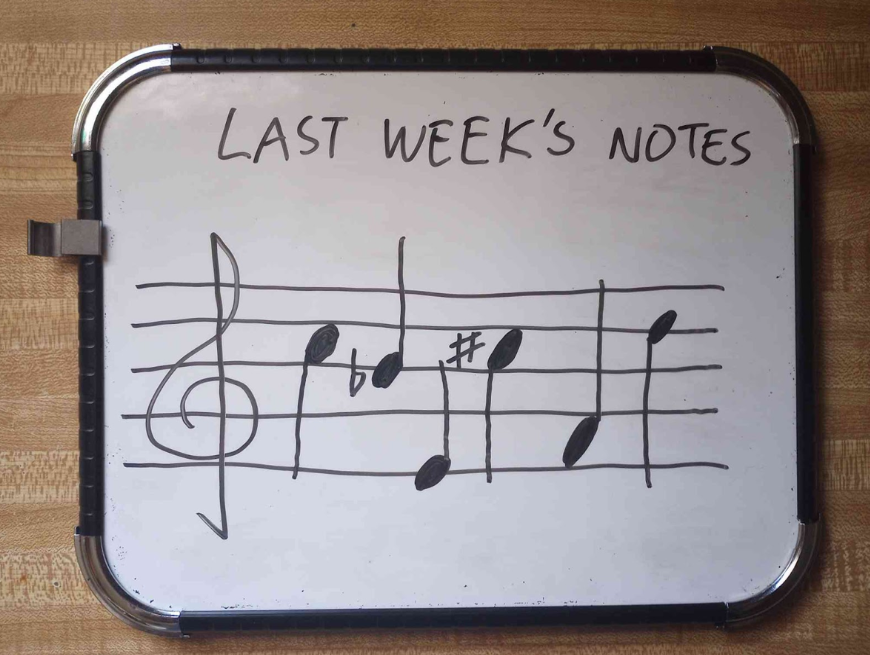 LAST WEEK'S NOTES